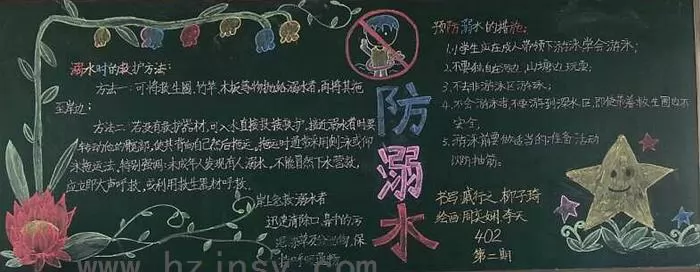 溺水时的救护方法:
方法一:可将救生圈、竹竿、木板等物抛给溺水者,再将其拖
至岸边;
方法二:若没有救护器材,可入水直接救护。接近溺水者时要
转动他的髋部,使其背向自己然后拖运。拖运时通常采用侧泳或仰
泳拖运法。特别强调:未成年人发现有人溺水,不能冒然下水营救,
应立即大声呼救,或利用救生器材呼救。
岸上急救溺水者
迅速清除口、鼻中的污
防溺水
预防溺水的措施:
1.小学生应在成人带领下游泳学会游泳;
2.不要独自在河边、山塘边玩耍;
3.不去非游泳区游泳;
4.不会游泳者,不要游到深水区,即使带着救生圈也不
安全;
5.游泳前要做适当的准备活动
以防抽筋。
书写 戚行之 柳子琦
402
第二期
www.hzjnsy.com